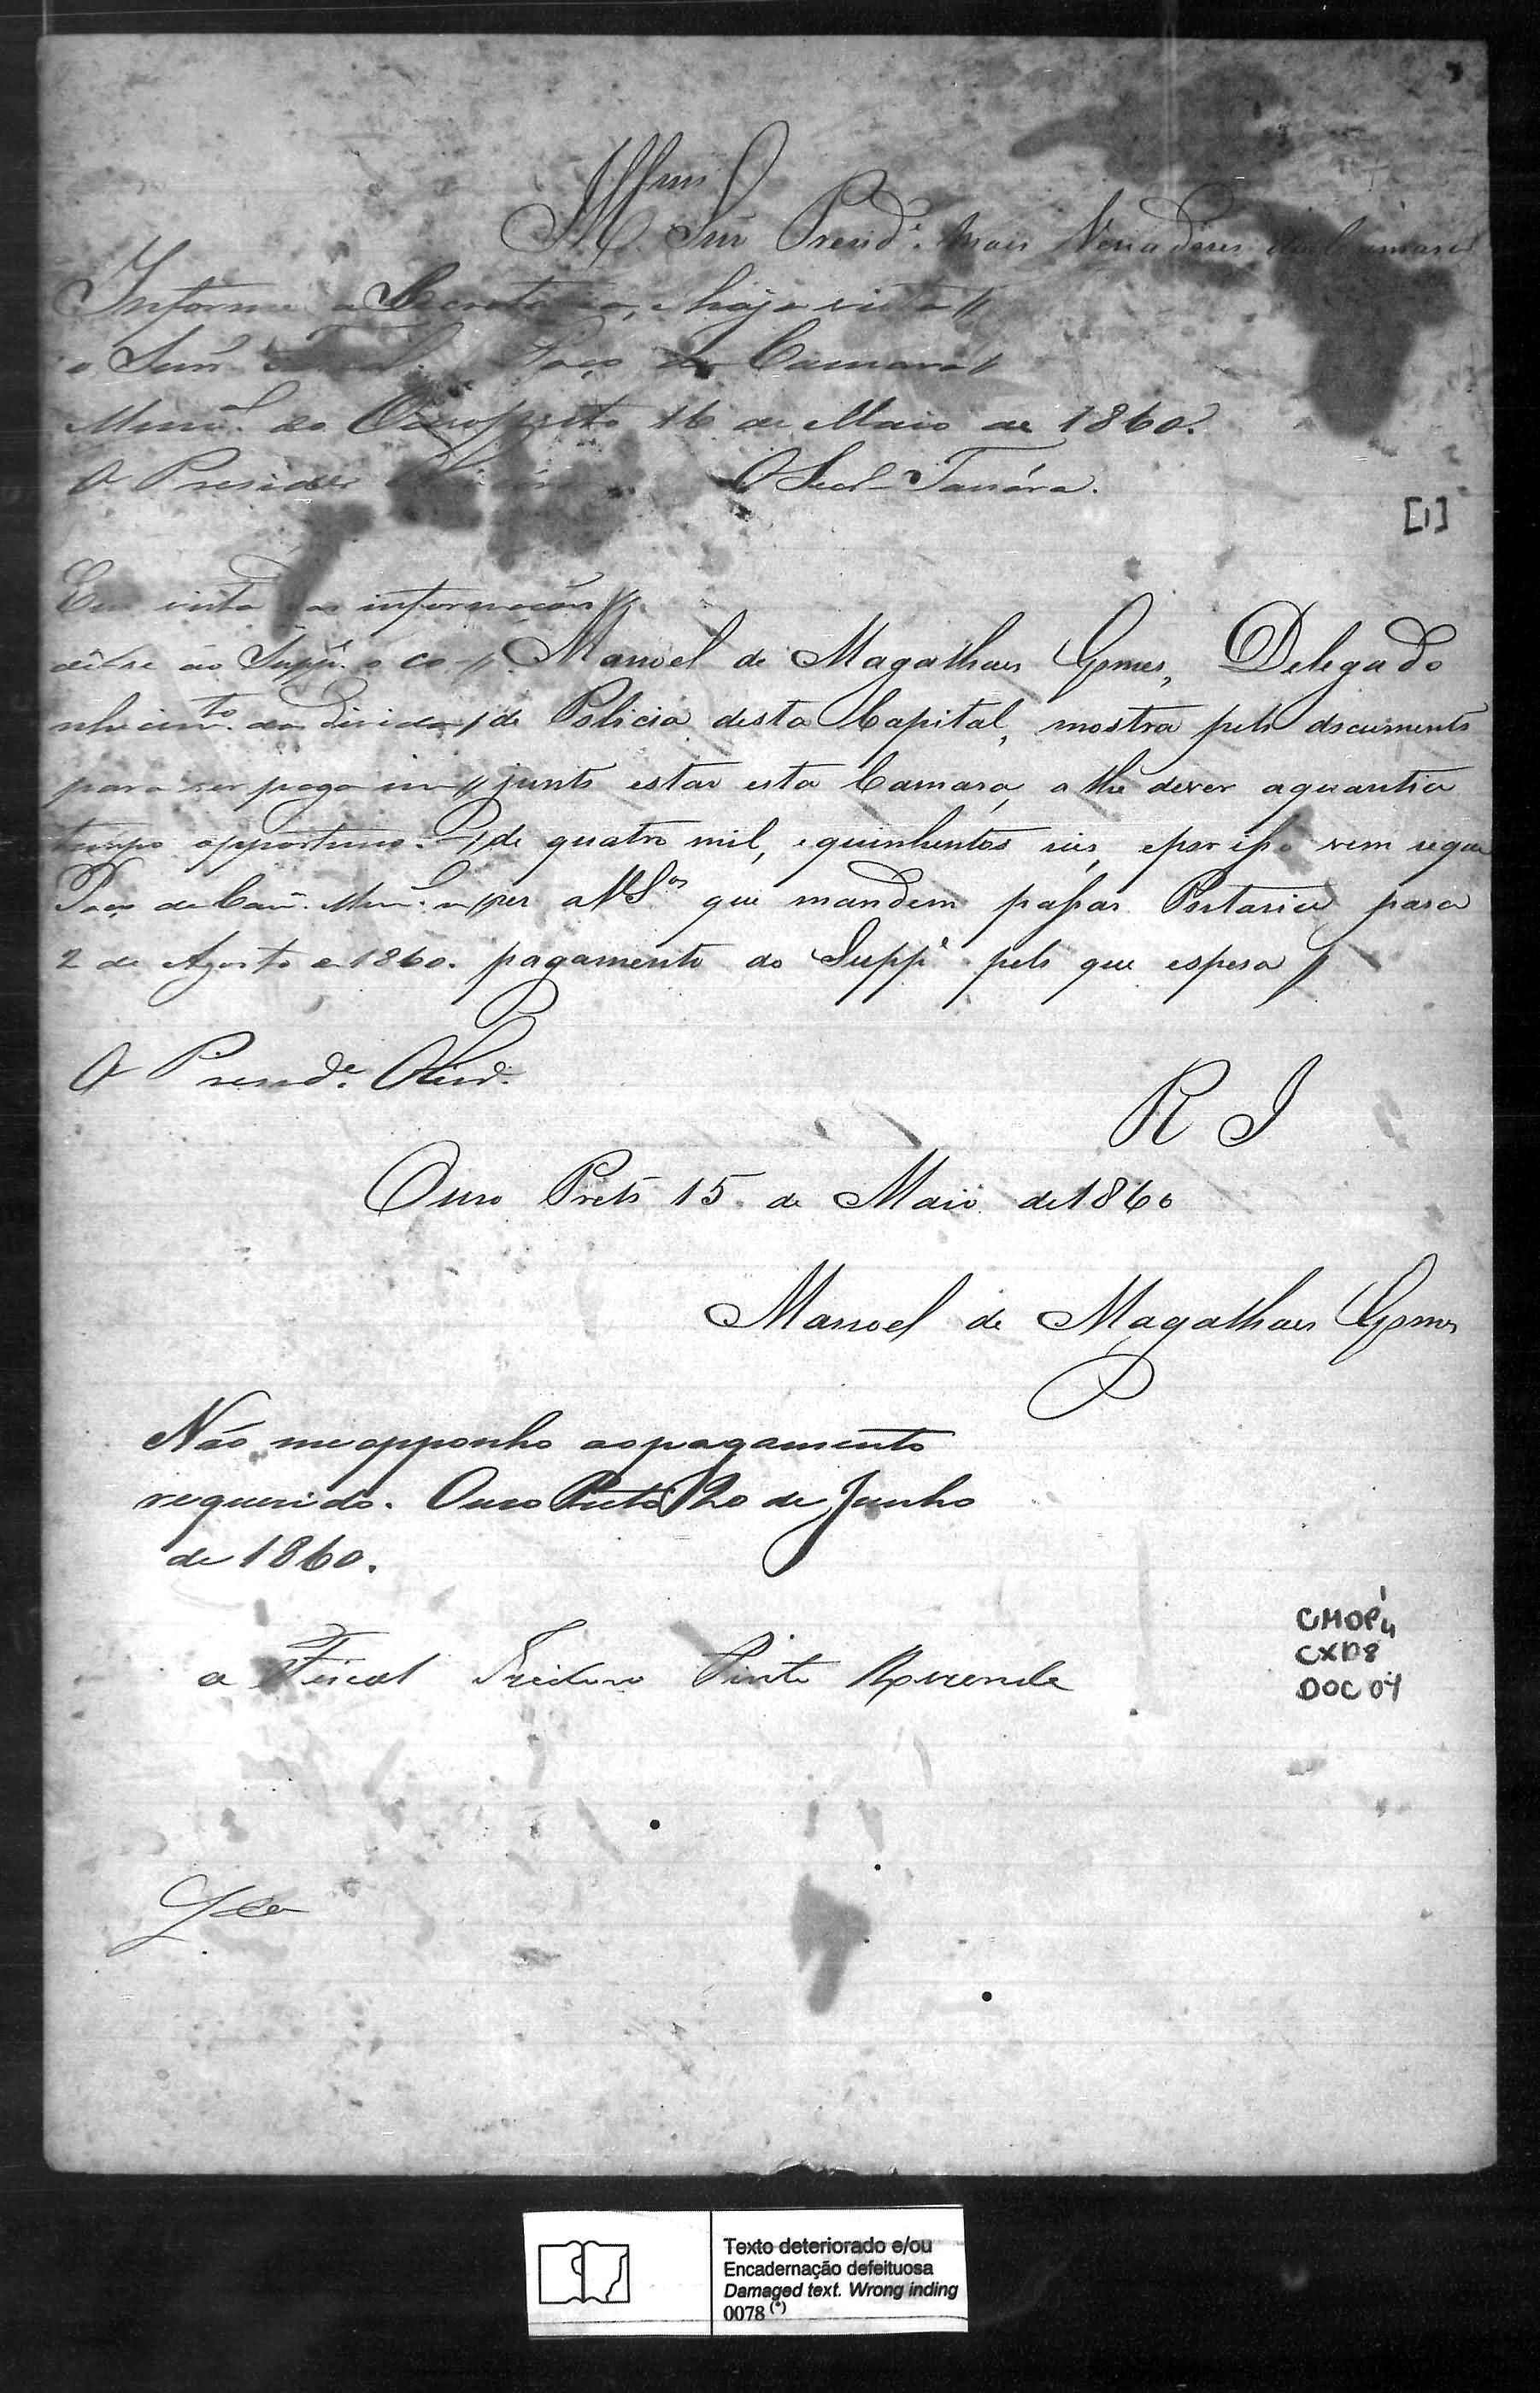 Illmos
Snr Presid.e e mais Veriadores da Camara
Informe o Secretario, e haja vista //
o Snr. Fiscal. Paço da Camara //
Munal. do Ouro preto 16 de Maio de 1860.
O Presider
O Secr.
[1]
Em vista das informações //
dê-se ao Supp.e o co- //
nhecimto. da divida /
para ser pago em //
tempo opportuno. /
Paço da Cam. Mun.l
2 de Agosto de 1860.
O Presid.e Oliv.ra
Manoel de Magalhaes Gomes, Delegado
de Policia desta Capital, mostra pelo documento
junto estar esta Camara, a lhe dever a quantia
de quatro mil, e quinhentos reis, e por isso vem reque
rer a V Sas que mandem passar Portaria para
pagamento do Supp.e pelo que espera //
R J
Ouro Preto 15 de Maio de 1860
Manoel de Magalhaes Gomes
Não me opponho ao pagamento
requerido. Ouro Preto 20 de Junho
de 1860.
o Fiscal Pinto Rezende
CMOP
CX08
DOC 04
Texto deteriorado e/ou
Encadernação defeituosa
Damaged text. Wrong inding
0078 (*)